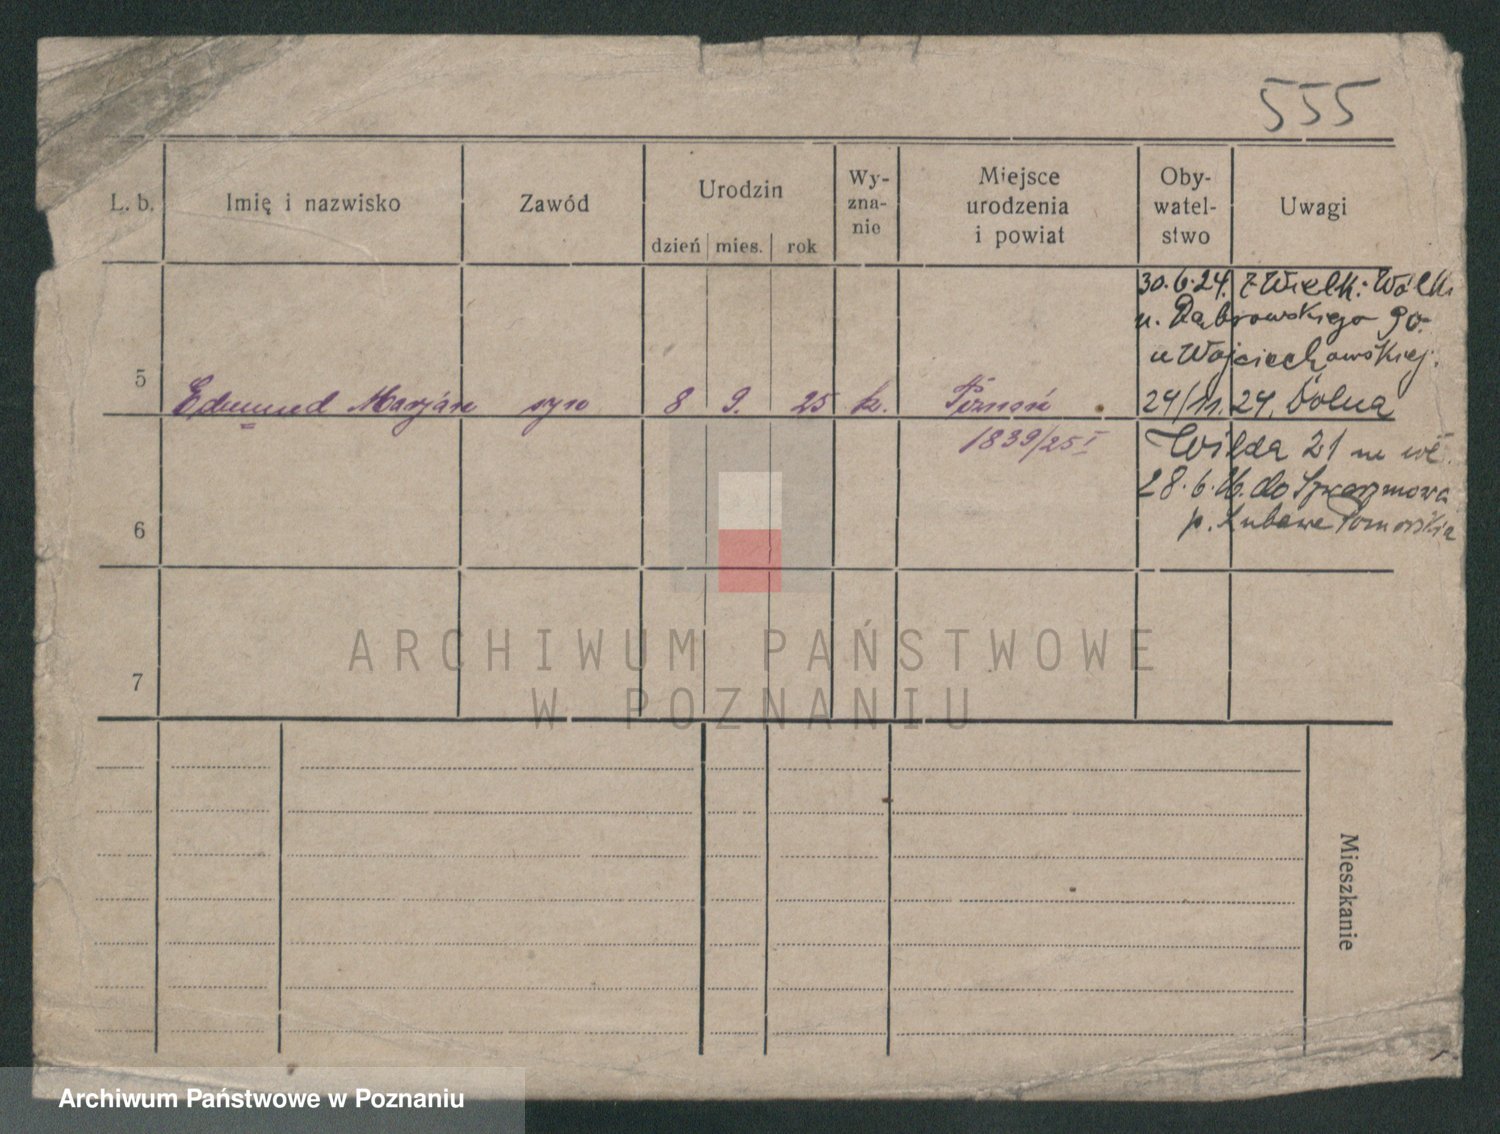 555
L. b. Imię i nazwisko Zawód Urodzin Wy- zna- nie Miejsce urodzenia i powiat Oby- watel- stwo Uwagi
dzień mies. rok
30.6.24. z Wielk: Wólki
u. Dąbrowskiego 90.
u Wojciechowskiej.
5 Edmund Marjan syn 8 9. 25 k. Poznań 24/11.24. Dolna
1839/25 I Wilda 21 u wł.
28.6.26. do
6 p. Lubawa Pomorskie
7
Mieszkanie
ARCHIWUM PAŃSTWOWE
W POZNANIU
Archiwum Państwowe w Poznaniu